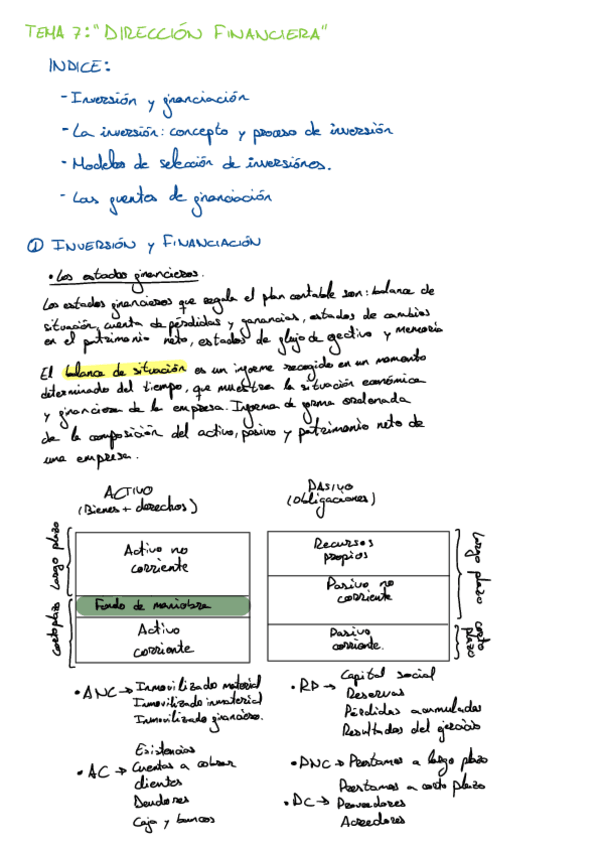 TEMA 7: "DIRECCIÓN FINANCIERA"
INDICE:
- Inversión y financiación
- La inversión: concepto y proceso de inversión
- Modelos de selección de inversiónes.
- Las fuentes de financiación
① INVERSIÓN y FINANCIACIÓN
• Los estados financieros.
Los estados financieros que regula el plan contable son: balance de
situación, cuenta de pérdidas y ganancias, estados de cambios
en el patrimonio neto, estados de flujo de efectivo y Memoria
El balance de situación es un informe recogido en un momento
determinado del tiempo, que muestra la situación económica
y financiera de la empresa. Informa de forma ordenada
de la composición del activo, pasivo y patrimonio neto de
una empresa.
ACTIVO
(Bienes + derechos)
PASIVO
(Obligaciones)
Largo plazo
corto plazo
Activo no
corriente
Fondo de maniobra
Activo
corriente
Recursos
propios
Pasivo no
corriente
Pasivo
corriente.
Largo plazo
corto
plazo
• ANC → Inmovilizado material
Inmovilizado inmaterial
Inmovilizado financiero.
Existencias
• AC → Cuentas a cobrar
clientes
Deudores
Caja y bancos
• RP → Capital social
Reservas
Pérdidas acumuladas
Resultados del ejercicio
• PNC → Préstamos a largo plazo
Préstamos a corto plazo
• PC → Proveedores
Acreedores